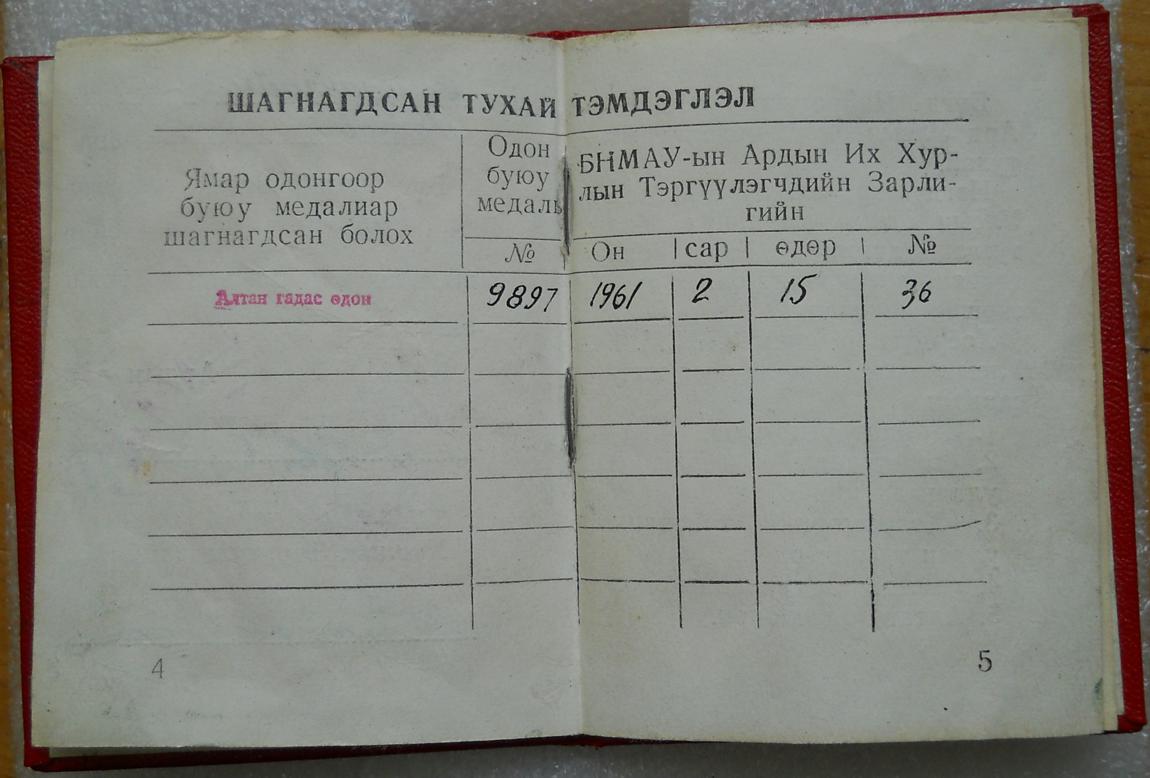 ШАГНАГДСАН ТУХАЙ ТЭМДЭГЛЭЛ
Ямар одонгоор
буюу медалиар
шагнагдсан болох
Одон
буюу
медаль
№
БНМАУ-ын Ардын Их Хур-
лын Тэргүүлэгчдийн Зарли-
гийн
Он сар өдөр №
Алтан гадас одон 9897 1961 2 15 36
4
5